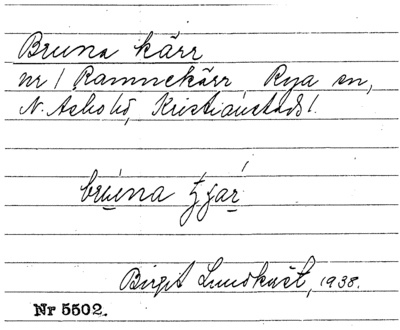 Bruna kärr
nr 1 Ramnekärr, Rya sn,
N. Åsbo hd, Kristianstads l.
bruna
Birgit Lundkvist, 1938.
Nr 5502.